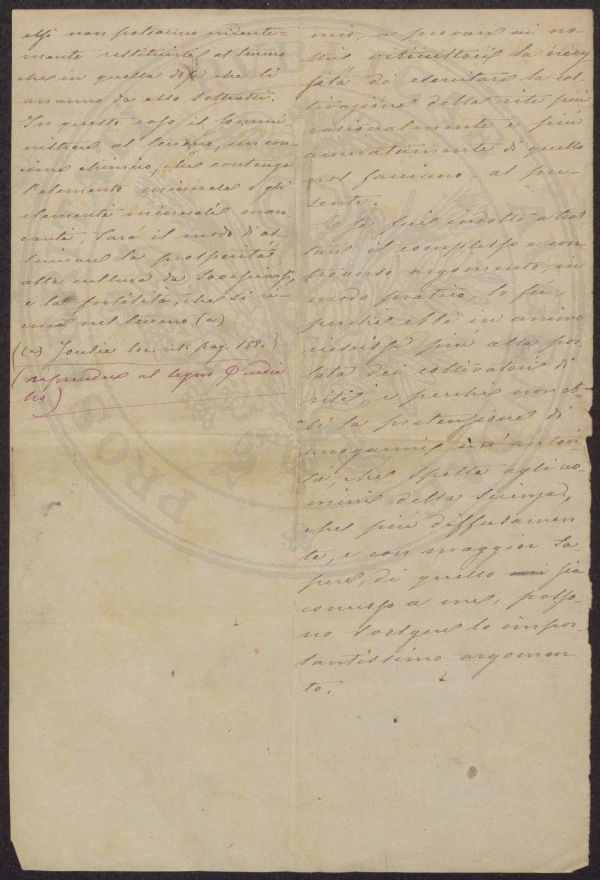 essi non possano evidente-
mente restituire al terreno
che in quella dose che li
avranno da esso sottratti.
In questo caso il sommi-
nistrare al terreno, un con-
cime chimico, che contenga
l'elemento minerale o gli
elementi minerali man-
canti, sarà il modo di as-
sicurare la prosperità
alla cultura da
e la fertilità, che si
nel terreno (a)
((a) Joulie loc. cit. pag. 188.)
(riprendere al segno indie
tro)
mio, a provare ai no-
stri viticultori la neces
sità di esercitare la col
tivazione della vite più
razionalmente e più
accuratamente di quello
nol facciano, al pre-
sente.
E se fui indotto a trat
tare il complesso e con
troverso argomento in
modo pratico, lo fu,
perchè ebbi in animo
riuscisse più alla por
tata dei coltivatori di
viti, e perchè non eb-
bi la pretensione di
arrogarmi un' autori-
tà che spetta agli uo-
mini della scienza,
che più diffusamen-
te, e con maggior sa-
pere, di quello sia
concesso a me, posso-
no svolgere lo impor-
tantissimo argomen
to.
PROS